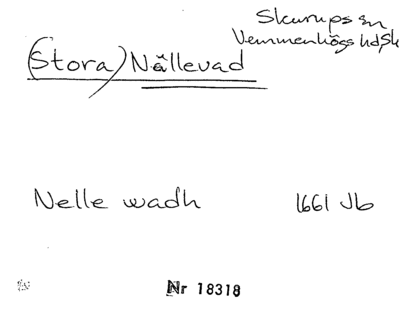 Skurups sn
Vemmenhögs hd, Sk
(Stora) Nällevad
Nelle wadh 1661 Jb
Nr 18318